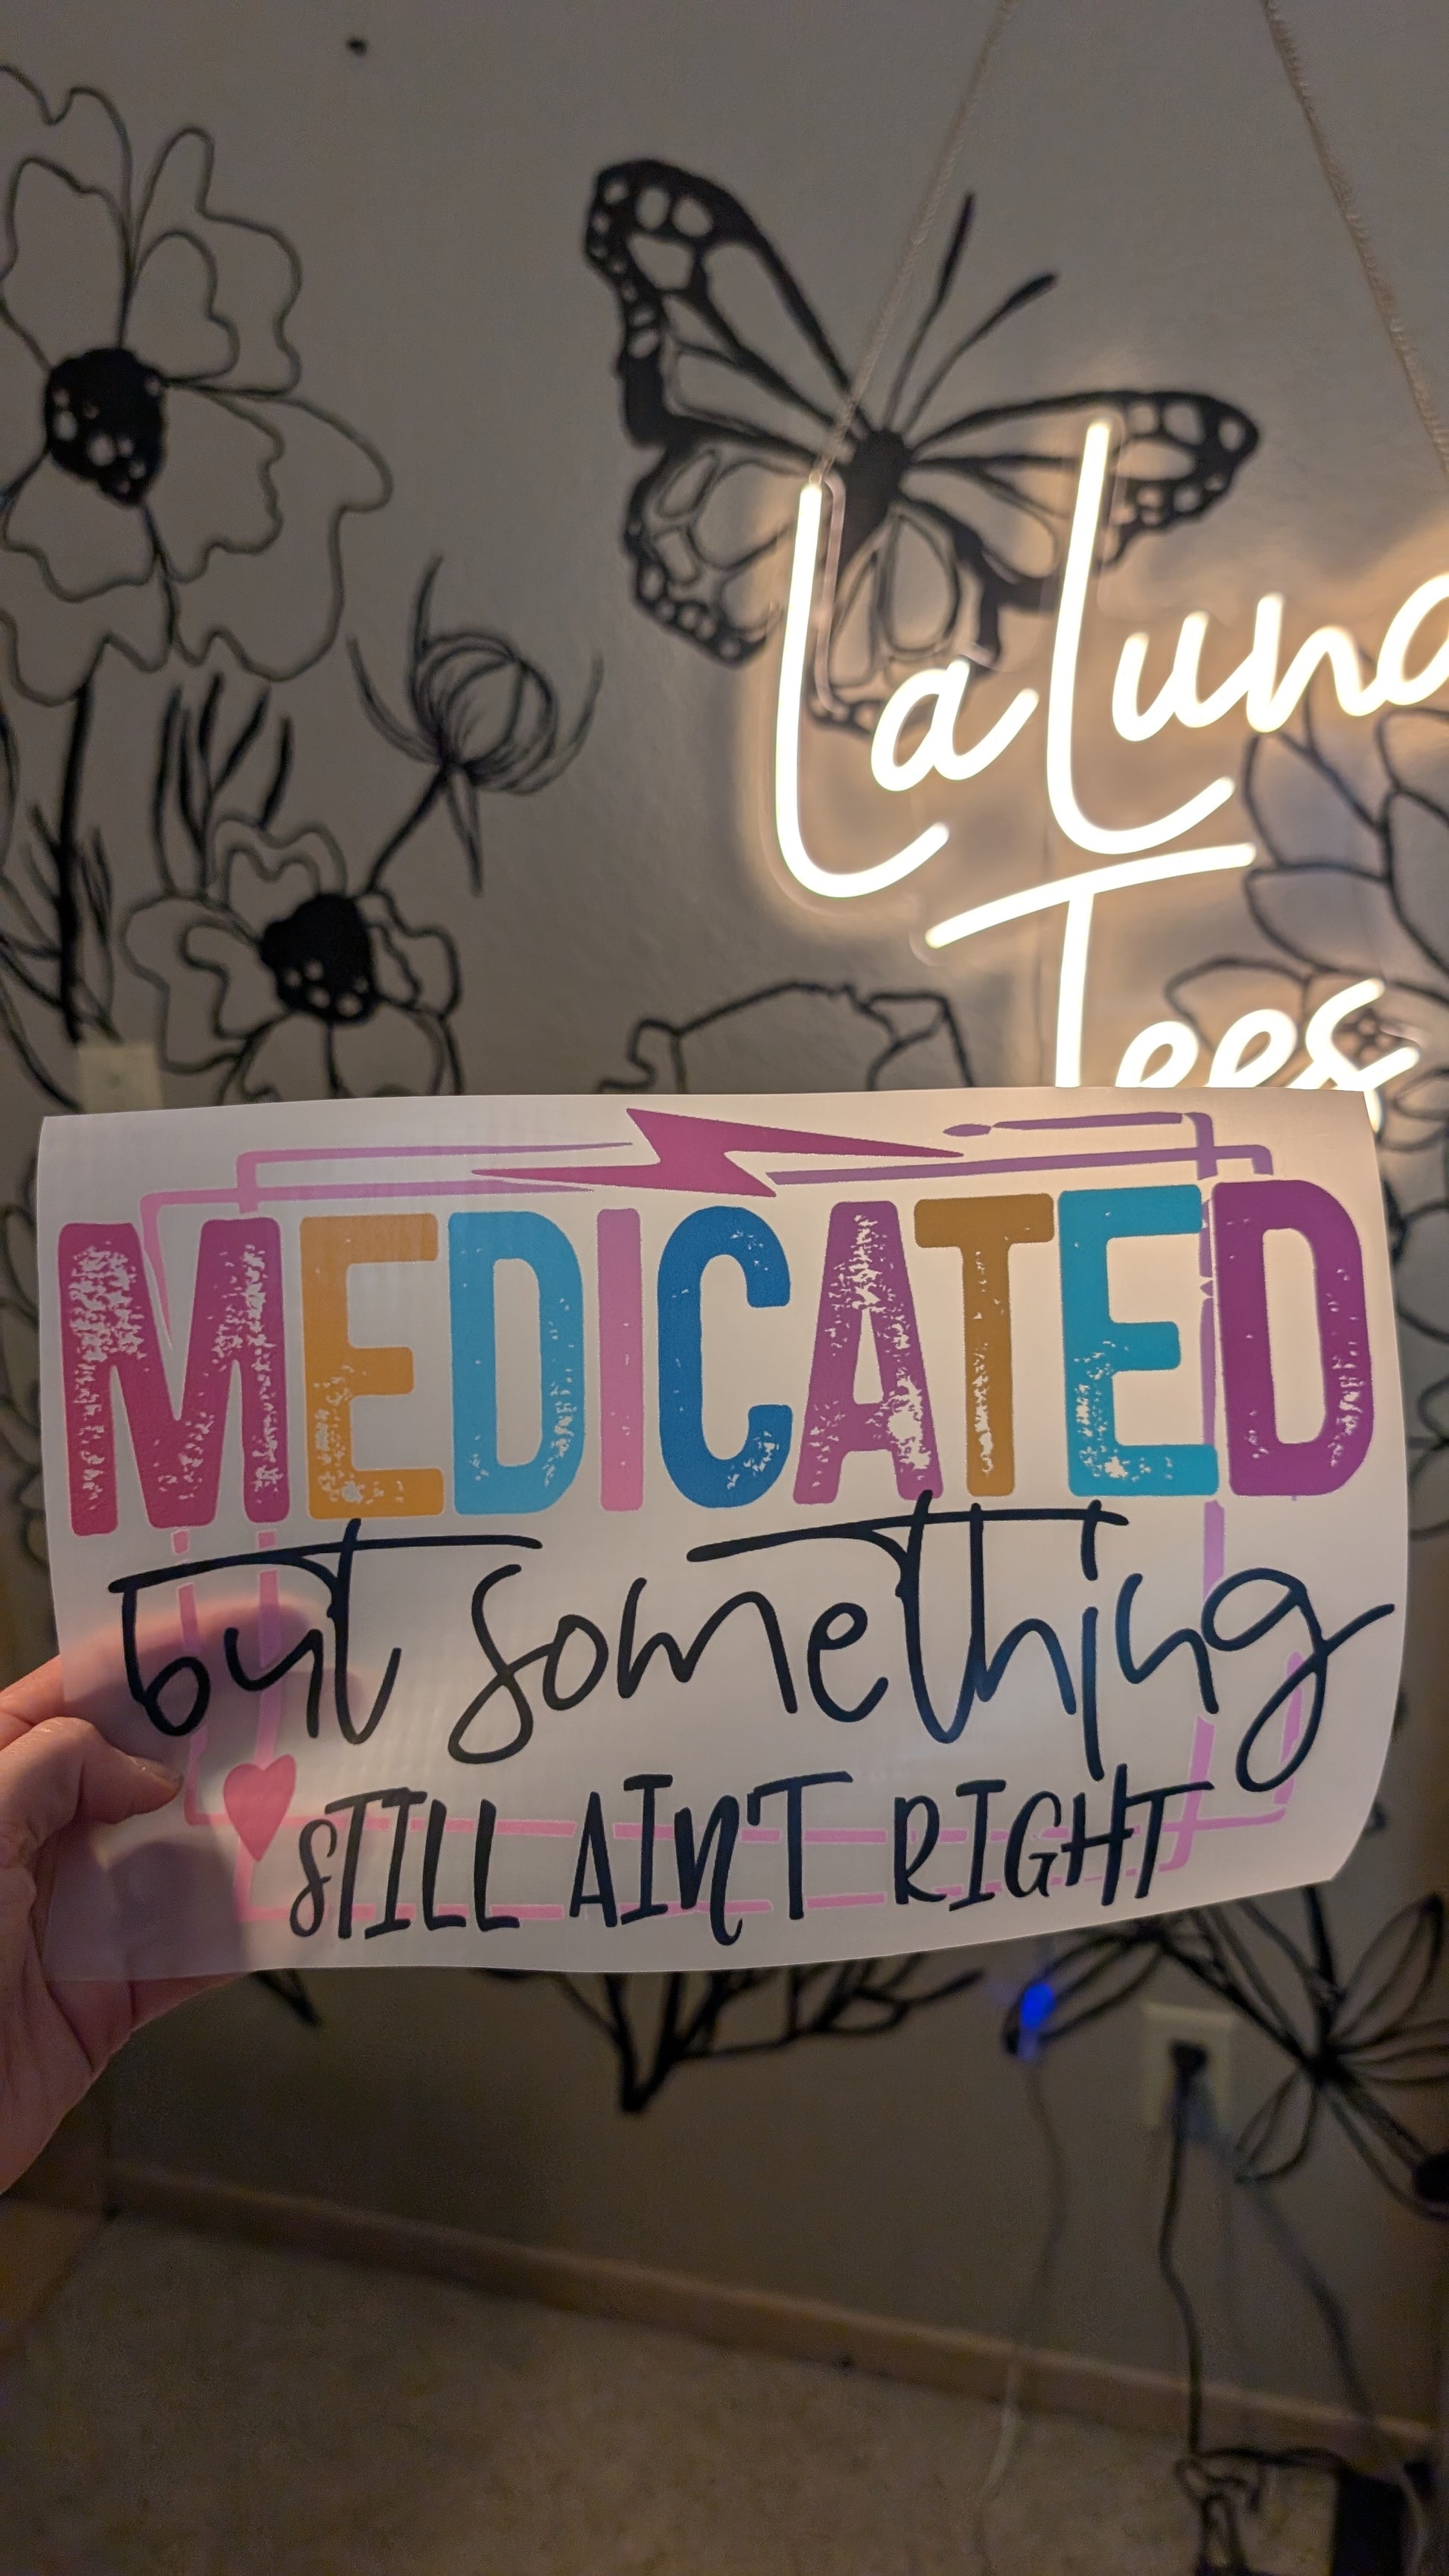 La Luna
Tees
MEDICATED
but something
STILL AIN'T RIGHT